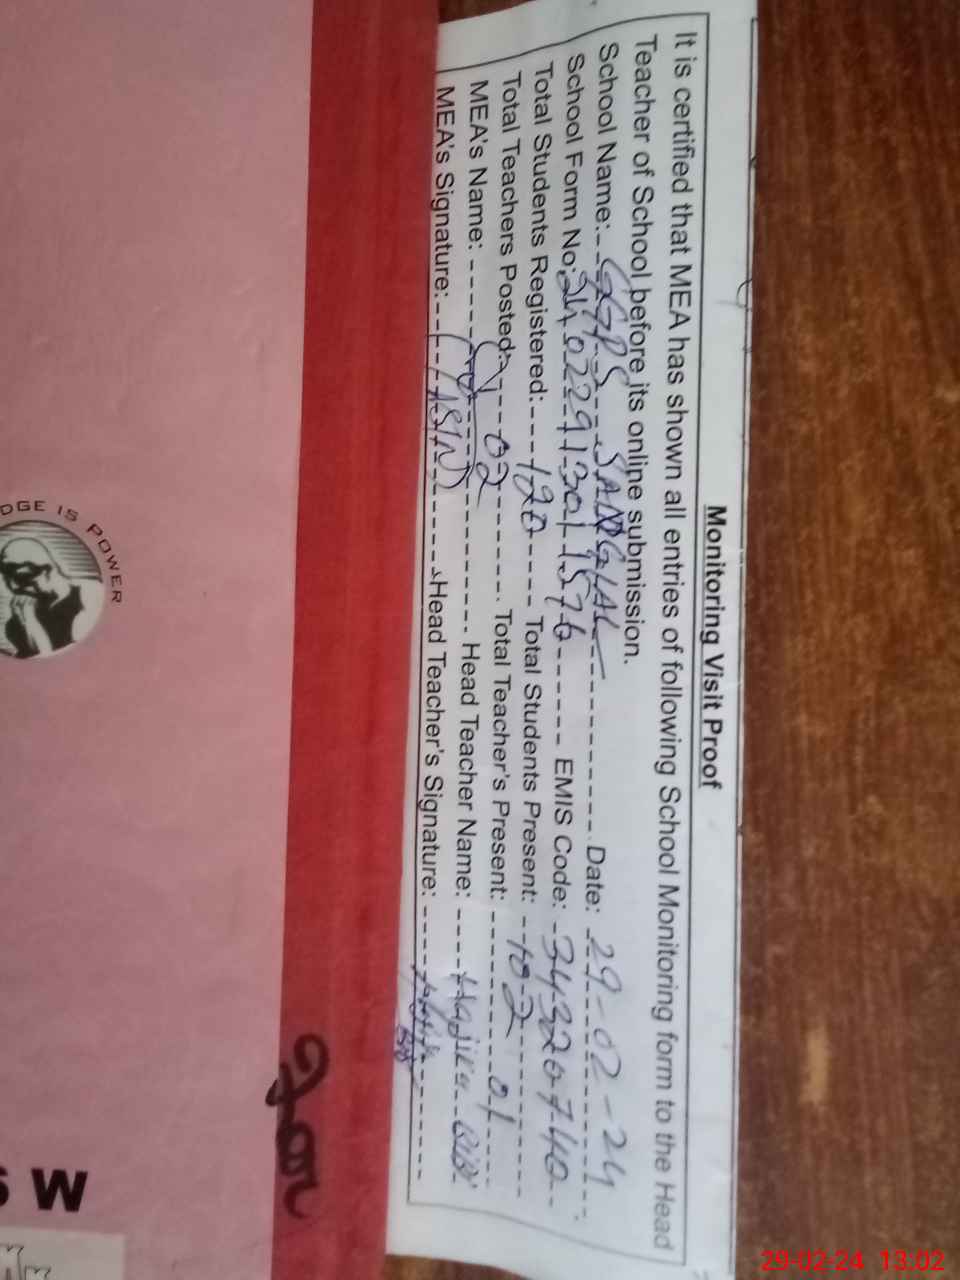 Monitoring Visit Proof
It is certified that MEA has shown all entries of following School Monitoring form to the Head
Teacher of School before its online submission.
School Name: GGPS SANGIAL Date: 29-02-24
School Form No: 24022913011576 EMIS Code: 34320740
Total Students Registered: 120 Total Students Present: 102
Total Teachers Posted: 02 Total Teacher's Present: 01
MEA's Name: Head Teacher Name: Hajira Bibi
MEA's Signature: (YASIN) Head Teacher's Signature:
DGE IS POWER
M S
29-02-24 13:02